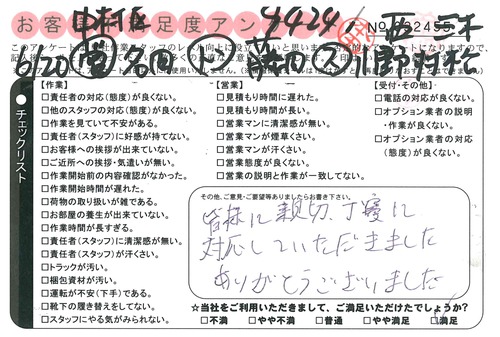 お客様満足度アンケート
No.
【作業】
□責任者の対応(態度)が良くない。
□他のスタッフの対応(態度)が良くない。
□作業を見ていて不安がある。
□責任者(スタッフ)に好感が持てない。
□お客様への挨拶が出来ていない。
□ご近所への挨拶・気遣いが無い。
□作業開始前の内容確認がなかった。
□作業開始時間が遅れた。
□荷物の取り扱いが雑である。
□お部屋の養生が出来ていない。
□作業時間が長すぎる。
□責任者(スタッフ)に清潔感が無い。
□責任者(スタッフ)が汗くさい。
□トラックが汚い。
□梱包資材が汚い。
□運転が不安(下手)である。
□靴下の履き替えをしてない。
□スタッフにやる気がみられない。
【営業】
□見積もり時間に遅れた。
□見積もり時間が長い。
□営業マンに清潔感が無い。
□営業マンが煙草くさい。
□営業マンが汗くさい。
□営業態度が良くない。
□営業の説明と作業が一致してない。
【受付・その他】
□電話の対応が良くない。
□オプション業者の説明
・作業が良くない。
□オプション業者の対応
(態度)が良くない。
チェックリスト
その他、ご意見・ご要望等ありましたらお書き下さい。
皆様に親切、丁寧に
対応していただきました
ありがとうございました
☆当社をご利用いただきまして、ご満足いただけたでしょうか?
□不満 □やや不満 □普通 □やや満足 □満足